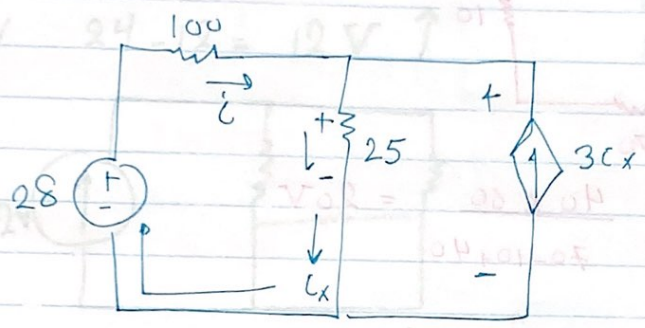 100
i
+
25
-
28
+
-
ix
+
3ix
-